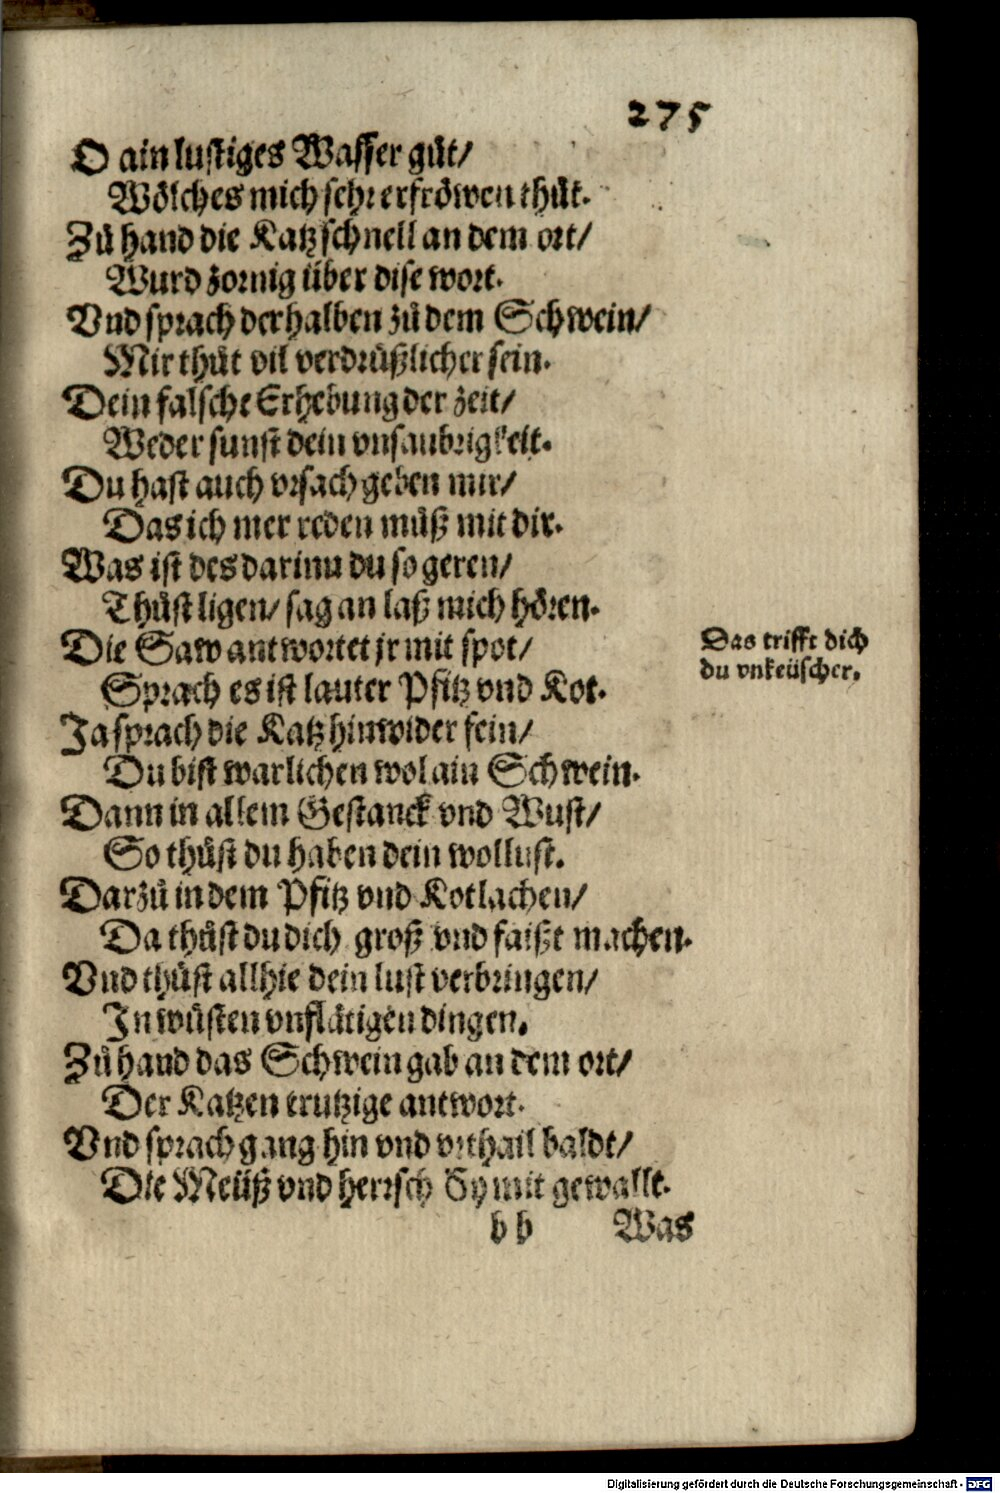 275
O ain lustiges Wasser gůt/
Wölches mich sehr erfröwen thůt.
Zů hand die Katz schnell an dem ort/
Wurd zornig über dise wort.
Vnd sprach derhalben zů dem Schwein/
Mir thůt vil verdrüßlicher sein.
Dein falsche Erhebung der zeit/
Weder sunst dein vnsaubrigkeit.
Du hast auch vrsach geben mir/
Das ich mer reden můß mit dir.
Was ist des darinn du so geren/
Thůst ligen/ sag an laß mich hören.
Die Saw antwortet jr mit spot/
Das trifft dich
du vnkeüscher.
Sprach es ist lauter Pfitz vnd Kot.
Ja sprach die Katz hinwider fein/
Du bist warlichen wol ain Schwein.
Dann in allem Gestanck vnd Wust/
So thůst du haben dein wollust.
Darzů in dem Pfitz vnd Kotlachen/
Da thůst du dich groß vnd faißt machen.
Vnd thůst allhie dein lust verbringen/
In wůsten vnflätigen dingen.
Zů hand das Schwein gab an dem ort/
Der Katzen trutzige antwort.
Vnd sprach gang hin vnd vrthail baldt/
Die Meüß vnd herrsch Sy mit gewallt.
b b Was
Digitalisierung gefördert durch die Deutsche Forschungsgemeinschaft - DFG